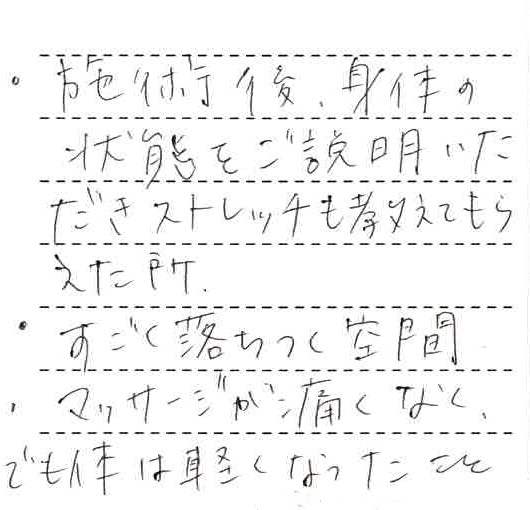 ・施術後、身体の
状態をご説明いた
だきストレッチも教えてもら
えた所.
・すごく落ちつく空間
・マッサージが痛くなく、
でも体は軽くなったこと